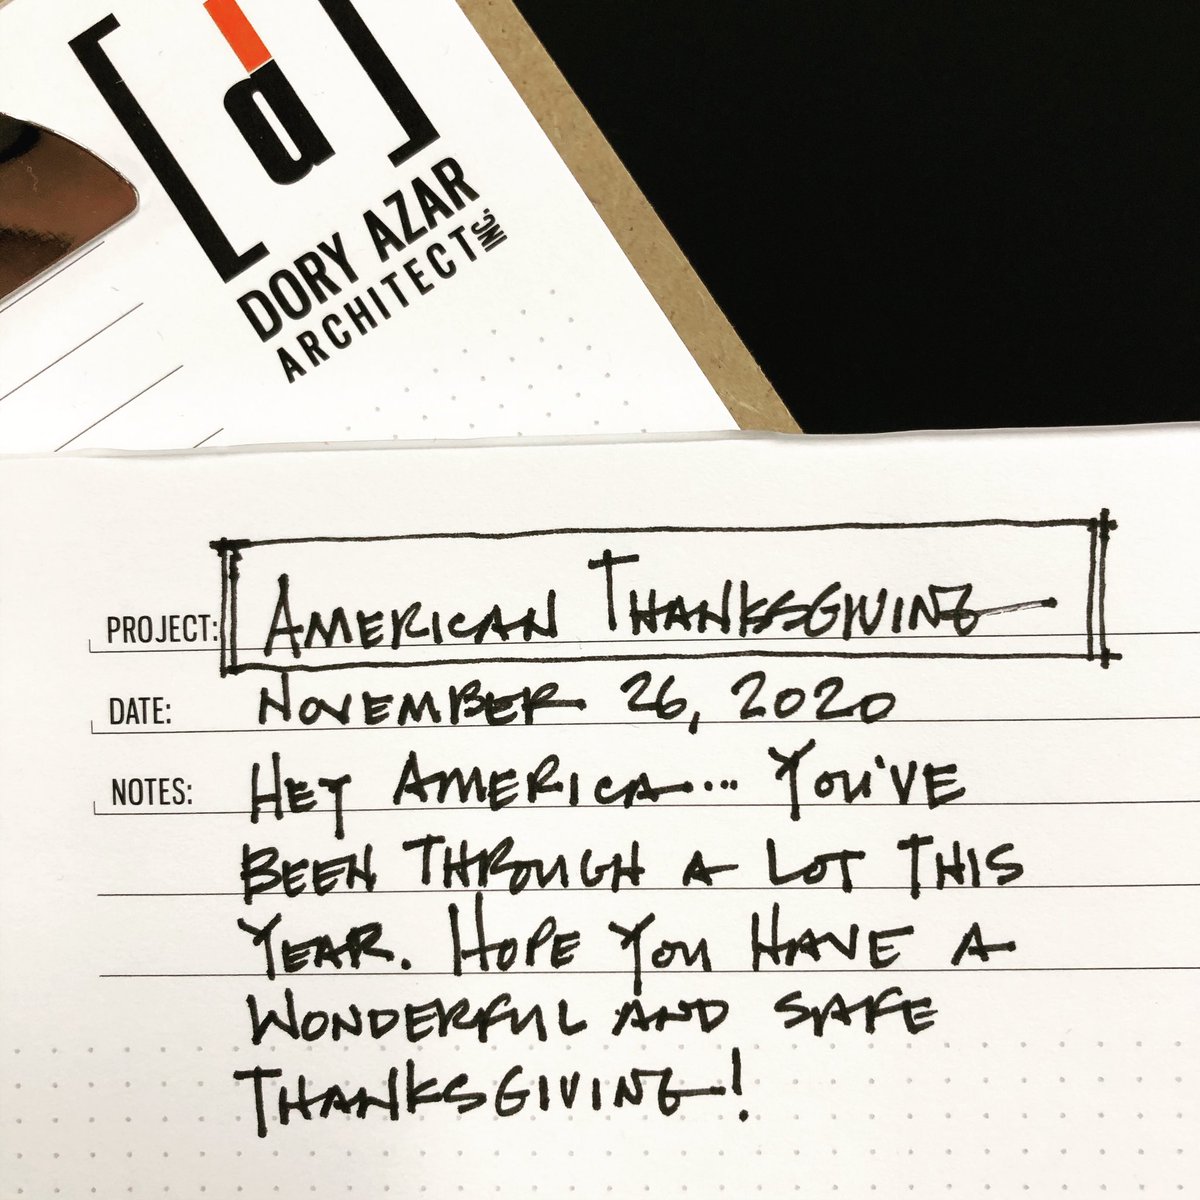 [d]
DORY AZAR
ARCHITECT INC.
PROJECT: AMERICAN THANKSGIVING
DATE: NOVEMBER 26, 2020
NOTES: HEY AMERICA... YOU'VE
BEEN THROUGH A LOT THIS
YEAR. HOPE YOU HAVE A
WONDERFUL AND SAFE
THANKSGIVING!